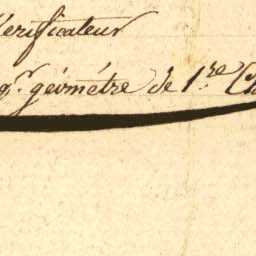 Vérificateur
gr. géométre de 1.re Cla